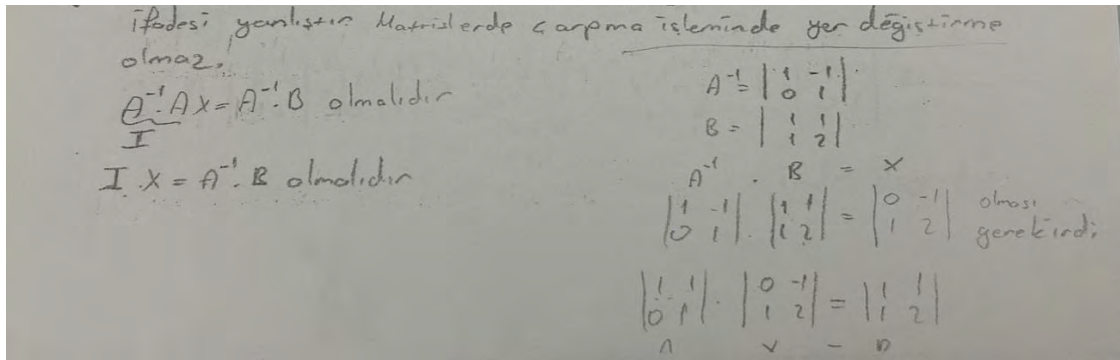 ifadesi yanlıştır Matrislerde çarpma işleminde yer değiştirme
olmaz.
A⁻¹.A X = A⁻¹.B olmalıdır
I
I.X = A⁻¹.B olmalıdır
A⁻¹ = |1 -1|
|0 1|
B = |1 1|
|1 2|
A⁻¹ . B = X
|1 -1| . |1 1| = |0 -1| olması
|0 1| |1 2| |1 2| gerekirdi
|1 1| . |0 -1| = |1 1|
|0 1| |1 2| |1 2|